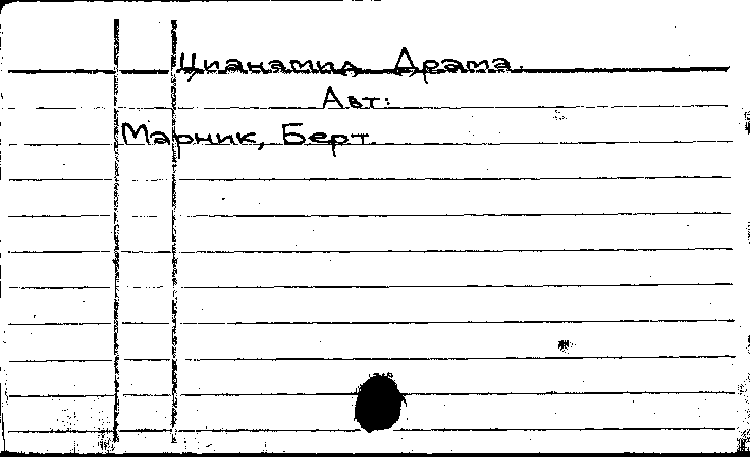 Цианамид Драма.
Авт:
Марник, Берт.